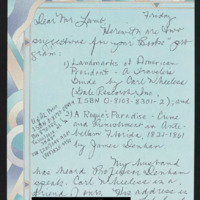 Friday
Dear Mr. Lamb,
Herewith are two
suggestions for your Books pro-
gram:
1) Landmarks of American
Presidents - A Travelers
Guide by Carl Wheeless
(Gale Research, Inc.,
ISBN 0-8103-8301-2); and
2) A Rogue's Paradise - Crime
and Punishment in Ante-
bellum Florida, 1821-1861
by James Denham.
My husband
has heard Professor Denham
speak. Carl Wheeless is a
friend of ours. His address is